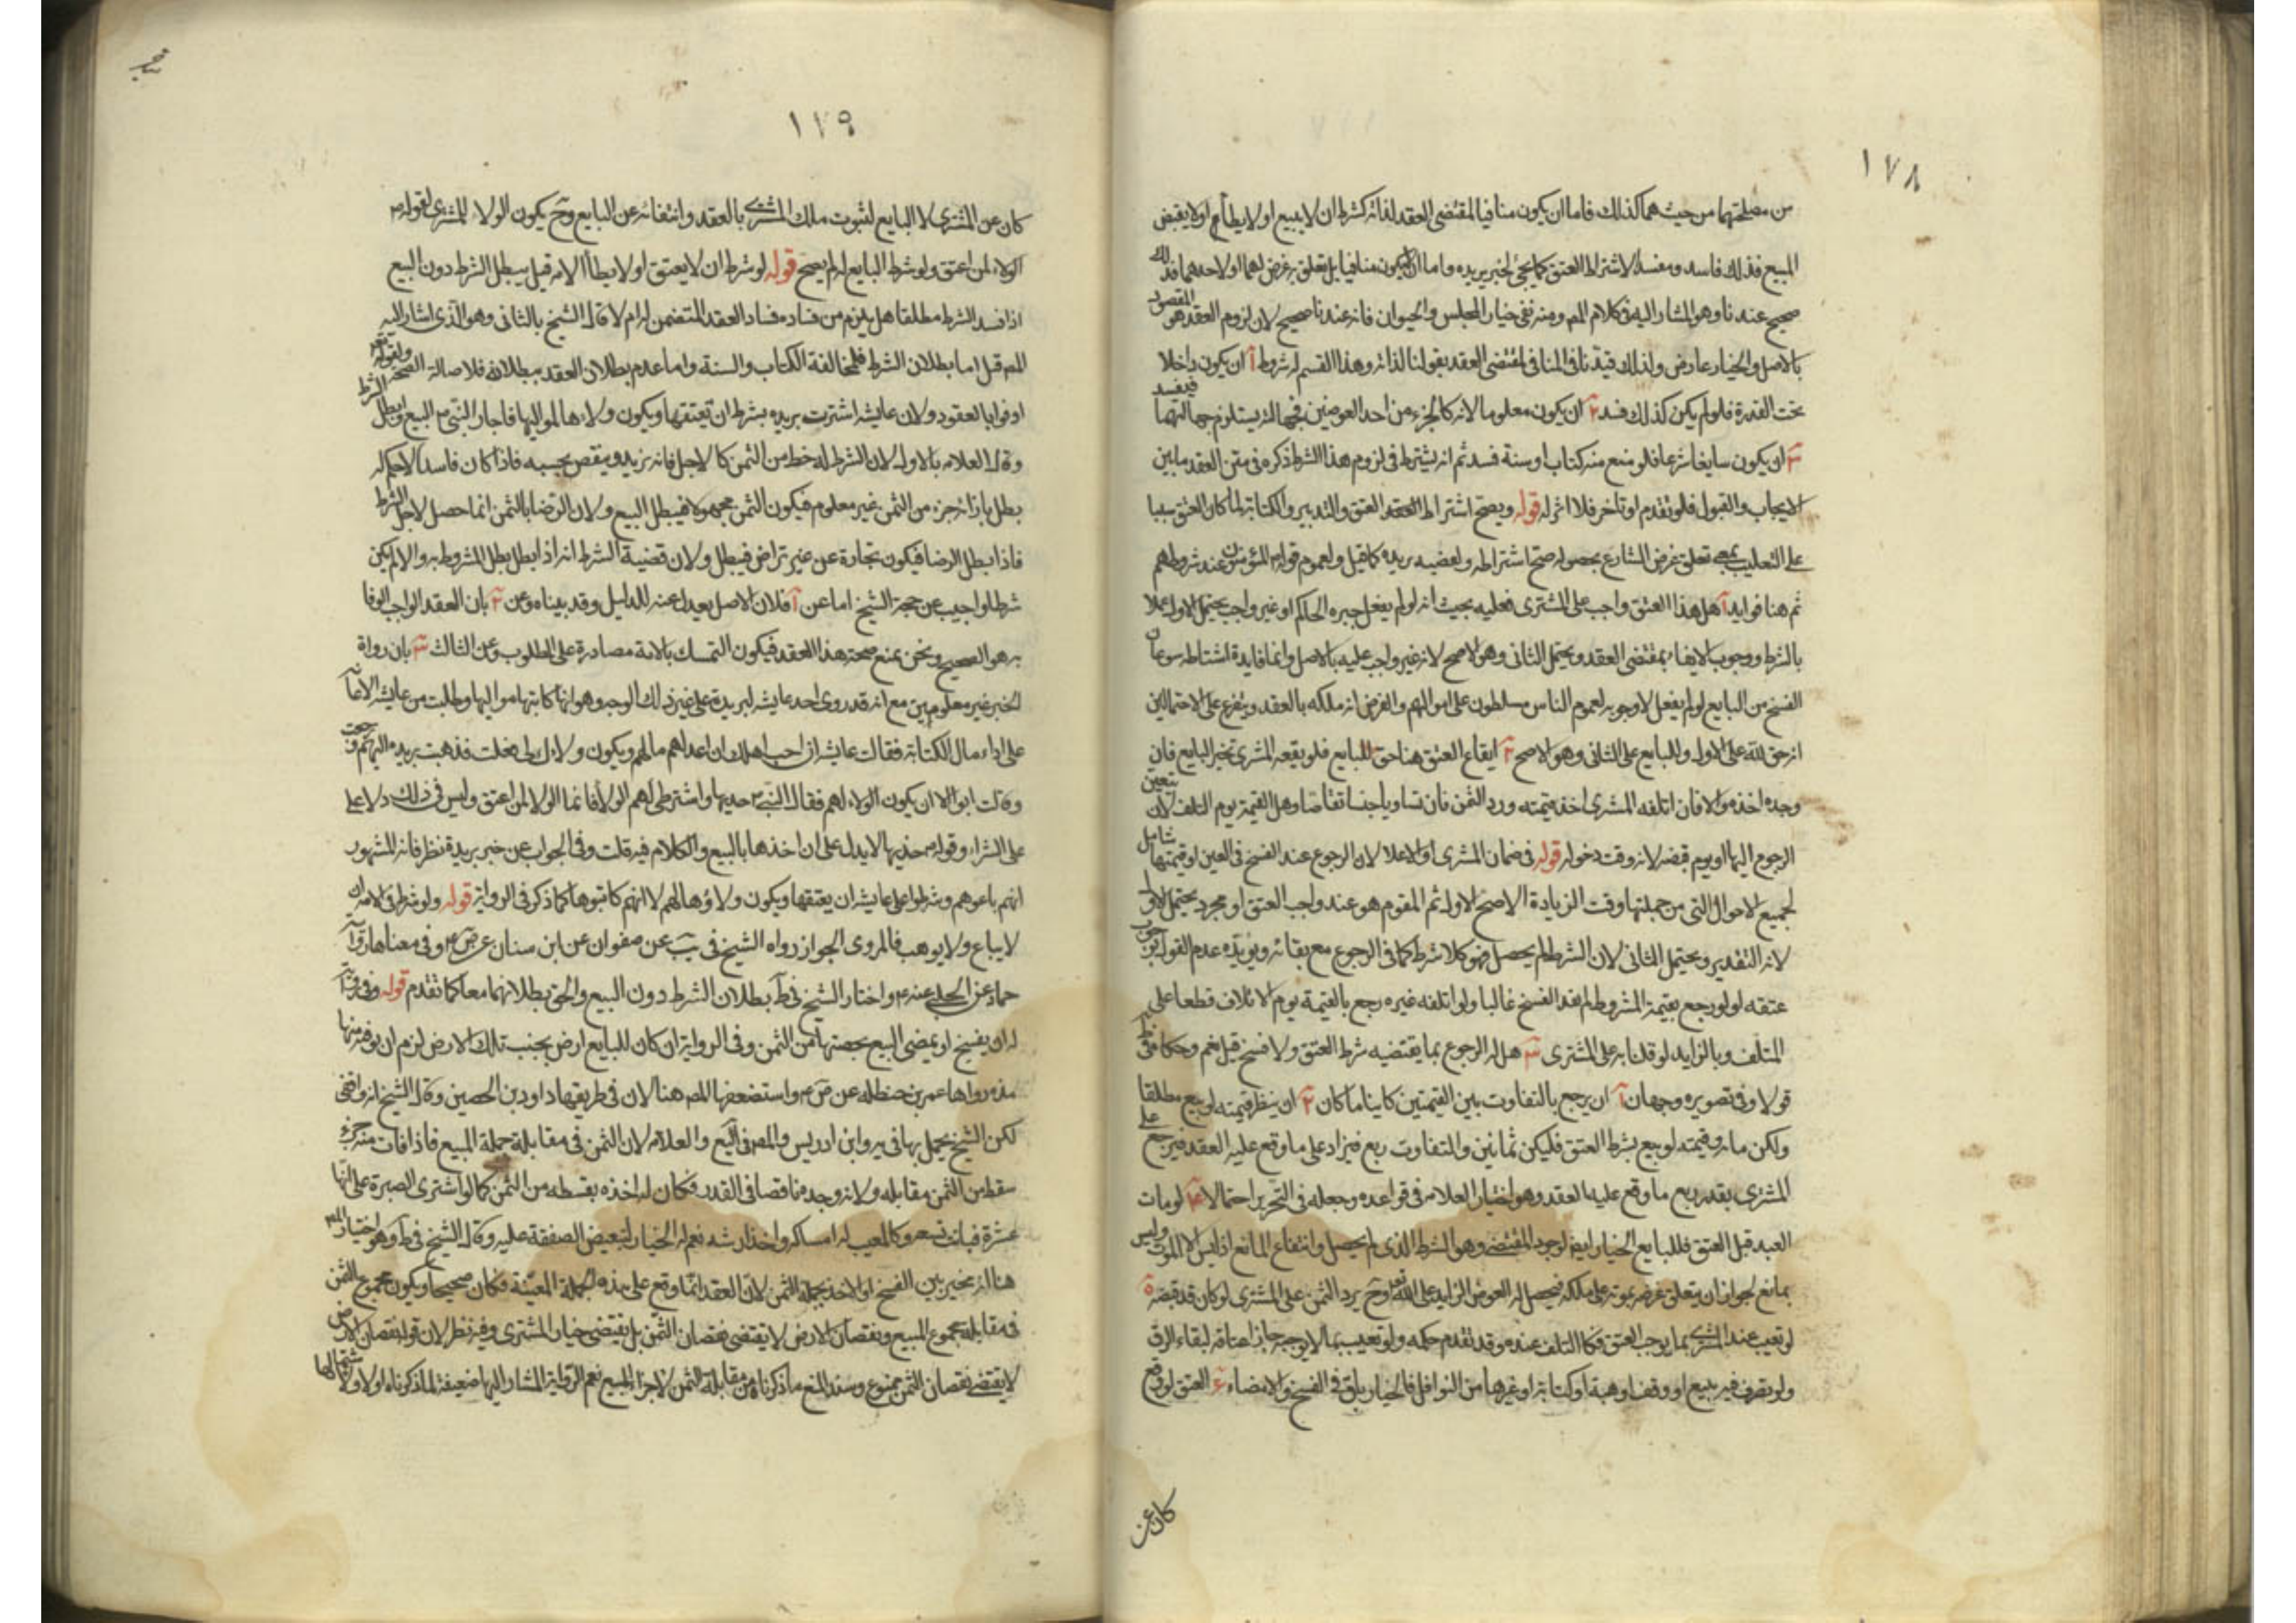 ١٧٨
من مصلحتهما من حيث هما كذلك فاما ان يكون منافيا لمقتضى العقد لذاته كشرط ان لا يبيع او لا يطأ او لا يقبض
المبيع فذلك فاسد ومفسد الا اشتراط العتق كما يجئ لخبر بريده واما ان لا يكون منافيا بل تعلق به غرض لهما او لاحدهما فذلك
صحيح عندنا وهو المشار اليه في كلام المص ومنه نفى خيار المجلس والحيوان فانه عندنا صحيح لان لزوم العقد هو المقصود
بالاصل والخيار عارض ولذلك قيدنا في المنافى لمقتضى العقد بقولنا لذاته وهذا القسم له شروط آ ان يكون داخلا
تحت القدرة فلو لم يكن كذلك فسد ٢ ان يكون معلوما لانه كالجزء من احد العوضين فجهالته يستلزم جهالتهما فيفسد
٣ ان يكون سايغا شرعا فلو منع منه كتاب او سنة فسد ثم انه يشترط فى لزوم هذا الشرط ذكره فى متن العقد ما بين
الايجاب والقبول فلو تقدم او تأخر فلا اثر له قوله ويصح اشتراط العتق والتدبير والكتابة لما كان العتق مبنيا
على التغليب بمعنى تعلق غرض الشارع بحصوله صح اشتراطه ولقضيه بريده كما قيل ولعموم قوله المؤمنون عند شروطهم
ثم هنا فوايد آ هل هذا العتق واجب على المشترى فعليه بحيث انه لو لم يفعل جبره الحاكم او غير واجب يحتمل الاول عملا
بالشرط ووجوب الايفاء بمقتضى العقد ويحتمل الثانى وهو الاصح لانه غير واجب عليه بالاصل وانما فايدة اشتراطه سوغان
الفسخ من البايع لو لم يفعل لا وجوبه لعموم الناس مسلطون على اموالهم والفرض انه ملكه بالعقد ويتفرع على الاحتمالين
انه حق لله على الاول وللبايع على الثانى وهو الاصح ٢ ايقاع العتق هنا حق للبايع فلو لم يقعه المشترى تخير البايع فان
وجده اخذه والا فان اتلفه المشترى اخذ قيمته ورد الثمن فان تساويا جنسا تقاصا وهل القيمة يوم التلف لان تعين
الرجوع اليها او يوم قبضه لانه وقت دخوله فى ضمان المشترى او الاعلا لان الرجوع عند الفسخ فى العين او قيمتها شامل
لجميع الاحوال التى من جملتها وقت الزيادة الاصح الاول ثم المقوم هو عند واجب العتق او مجرد يحتمل الاول
لانه التقدير ويحتمل الثانى لان الشرط لم يحصل فهو كلا شرط كما فى الرجوع مع بقائه ويؤيده عدم القول
عتقه لو لو رجع بقيمة المشروط لم يفد الفسخ غالبا ولو اتلفه غيره رجع بالقيمة يوم الاتلاف قطعا على
المتلف وبالزايد لو قلنا به على المشترى ٣ هل له الرجوع بما يقتضيه شرط العتق ولا فسخ قيل نعم وحكاه
قولا وفى تصويره وجهان آ ان يرجع بالتفاوت بين القيمتين كاينا ما كان ٢ ان ينظر قيمته لو بيع مطلقا
ولكن مائة وقيمته لو بيع بشرط العتق فليكن ثمانين والتفاوت ربع فيزاد على ما وقع عليه العقد فيرجع على
المشترى بقدر ربع ما وقع عليه العقد وهو اختيار العلامه فى قواعده وجعله فى التحرير احتمالا ٤ لو مات
العبد قبل العتق فللبايع الخيار ايض لوجود المقتضى وهو الشرط الذى لم يحصل وانتفاء المانع اذ ليس الا الموت وليس
بمانع لجواز ان يتعلق غرضه بموته على ملكه فيحصل له العوض الزايد على الله تع وح يرد الثمن على المشترى لو كان قد قبضه ٥
لو تعيب عند المشترى بما يوجب العتق فكالتلف عنده وقد تقدم حكمه ولو تعيب بما لا يوجبه جاز اعتاقه لبقاء الرق
ولو تصرف فيه ببيع او وقف او هبة او كتابة او غيرها من النوافل فالخيار باق فى الفسخ والامضاء ٦ العتق لو وقع
كان عن
١٧٩
كان عن المشترى لا البايع لثبوت ملك المشترى بالعقد وانتفائه عن البايع وح يكون الولاء للمشترى لقوله ص
الولاء لمن اعتق ولو شرط البايع له لم يصح قوله لو شرط ان لا يعتق او لا يطأ الامة قيل يبطل الشرط دون البيع
اذا فسد الشرط مطلقا هل يلزم من فساده فساد العقد المتضمن له ام لا قال الشيخ بالثانى وهو الذى اشار اليه
المص قبل اما بطلان الشرط فلمخالفة الكتاب والسنة واما عدم بطلان العقد ببطلانه فلاصالة الصحة ولقوله تع
اوفوا بالعقود ولان عايشه اشترت بريده بشرط ان تعتقها ويكون ولاءها لمواليها فاجاز النبى ص البيع وابطل الشرط
وقال العلامه بالاول لان الشرط له حظ من الثمن كالاجل فانه يزيد وينقص بحسبه فاذا كان فاسدا لا حكم له
بطل بازائه جزء من الثمن غير معلوم فيكون الثمن مجهولا فيبطل البيع ولان الرضا بالثمن انما حصل لاجل الشرط
فاذا بطل بطل الرضا فيكون تجارة عن غير تراض فيبطل ولان قضية الشرط انه اذا بطل بطل المشروط به والا لم يكن
شرطا واجيب عن حجة الشيخ اما عن آ فلان الاصل يعدل عنه للدليل وقد بيناه وعن ٢ بان العقد الواجب الوفا
به هو الصحيح ونحن نمنع صحة هذا العقد فيكون التمسك بالاية مصادرة على المطلوب وعن الثالث ٣ بان رواة
الخبر غير معلومين مع انه قد روى احد عايشه لبريدة على غير ذلك الوجه وهو انها كاتبها مواليها وطلبت من عايشه الاعانه
على اداء مال الكتابة فقالت عايشه ان احب اهلك ان اعد لهم مالهم ويكون ولاءك لى فعلت فذهبت بريده اليهم ورجعت
وقالت ابوا الا ان يكون الولاء لهم فقال النبى ص خذيها واشترطى لهم الولاء فانما الولاء لمن اعتق وليس فى ذلك دلالة على
على الشراء وقوله ص خذيها لا يدل على ان اخذها بالبيع والكلام فيه قلت وفى الجواب عن خبر بريدة نظر فانه المشهور
انهم باعوهم وشرطوا على عايشه ان يعتقها ويكون ولاؤها لهم لا انهم كاتبوها كما ذكر فى الرواية قوله ولو شرط فى الامة ان
لا يباع ولا يوهب فالمروى الجواز رواه الشيخ فى يب عن صفوان عن ابن سنان عن ص ع وفى معناها رواية
حماد عن الحلبى عنه ع واختار الشيخ فى ط بطلان الشرط دون البيع والحق بطلانهما معا كما تقدم قوله وفى رواية
له ان يفسخ او يمضى البيع بحصتها من الثمن وفى الرواية ان كان للبايع ارض بجنب تلك الارض لزم ان يوفيه منها
هذه رواها عمر بن حنظله عن ص ع واستضعفها المص هنا لان فى طريقها داود بن الحصين وقال الشيخ انه واقفى
لكن الشيخ يعمل بها فى يه وابن ادريس والمص فى يع والعلامه لان الثمن فى مقابلة جملة المبيع فاذا فات منه جزء
سقط من الثمن مقابله ولانه وجد مناقصا فى القدر فكان له اخذه بقسطه من الثمن كما لو اشترى الصبرة على انها
عشرة فبانت تسعه وكالمعيب له امساكه واخذ ارشه نعم له الخيار لتبعيض الصفقة عليه وقال الشيخ فى ط وهو اختيار المص
هنا انه يخير بين الفسخ او الاخذ بجملة الثمن لان العقد انما وقع على هذه الجملة المعينة فكان صحيحا ويكون مجموع الثمن
فى مقابلة مجموع المبيع ونقصان الارض لا يقتضى نقصان الثمن بل يقتضى خيار المشترى وفيه نظر لان قوله نقصان الارض
لا يقتضى نقصان الثمن ممنوع وسند المنع ما ذكرناه من مقابلة الثمن لاجزاء المبيع نعم الرواية المشار اليها ضعيفة لما ذكرناه اولا ولاشتمالها